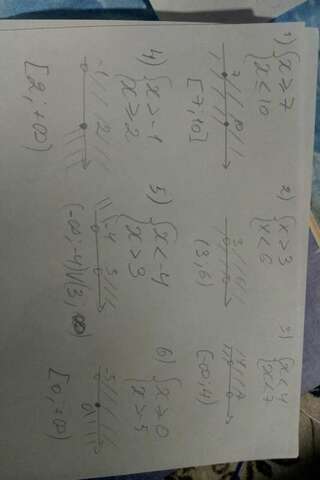 1) { x ≥ 7
x < 10
7 10
[7; 10]
2) { x > 3
x < 6
3 6
(3; 6)
3) { x < 4
x < 7
4 7
(-∞; 4)
4) { x > -1
x ≥ 2
-1 2
[2; +∞)
5) { x < 4
x > 3
-4 3
(-∞; -4) U (3; ∞)
6) { x ≥ 0
x > -5
-5 0
[0; +∞)